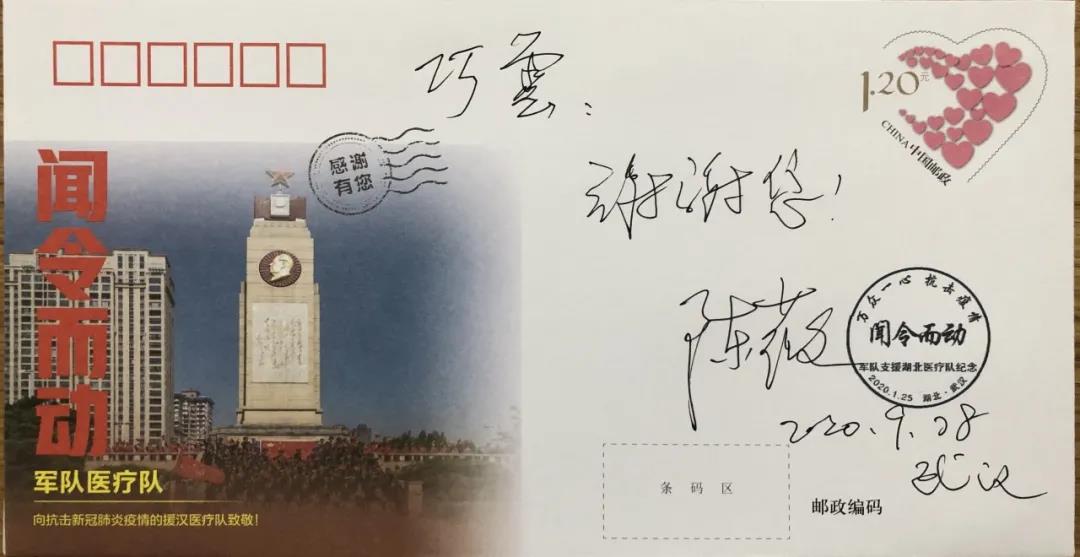 巧雲：
1.20元
CHINA 中国邮政
感谢
有您
谢谢您！
闻令而动
陈薇
万众一心 抗击疫情
闻令而动
军队支援湖北医疗队纪念
2020.1.25 湖北·武汉
2020.9.28
武汉
军队医疗队
向抗击新冠肺炎疫情的援汉医疗队致敬！
条码区
邮政编码